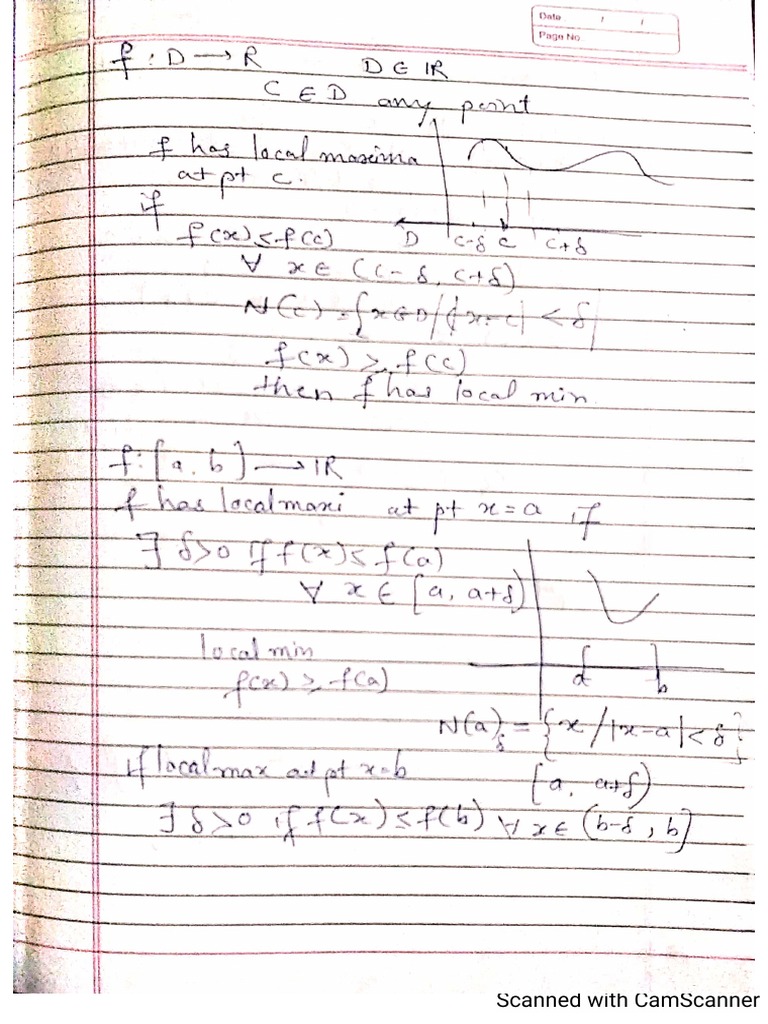 Date / /
Page No
f : D → R D ∈ IR
C ∈ D any point
f has local maxima
at pt c.
if
f(x) ≤ f(c)
D c-δ c c+δ
∀ x ∈ (c-δ, c+δ)
N(c) = {x∈D/|x-c| < δ
f(x) ≥ f(c)
then f has local min
f: [a, b] → IR
f has local maxi at pt x = a if
∃ δ>0 if f(x) ≤ f(a)
∀ x ∈ [a, a+δ)
local min
f(x) ≥ f(a)
a b
N(a)δ = {x/|x-a|<δ}
if local max at pt x=b [a, a+δ)
∃ δ>0 if f(x) ≤ f(b) ∀ x ∈ (b-δ, b]
Scanned with CamScanner